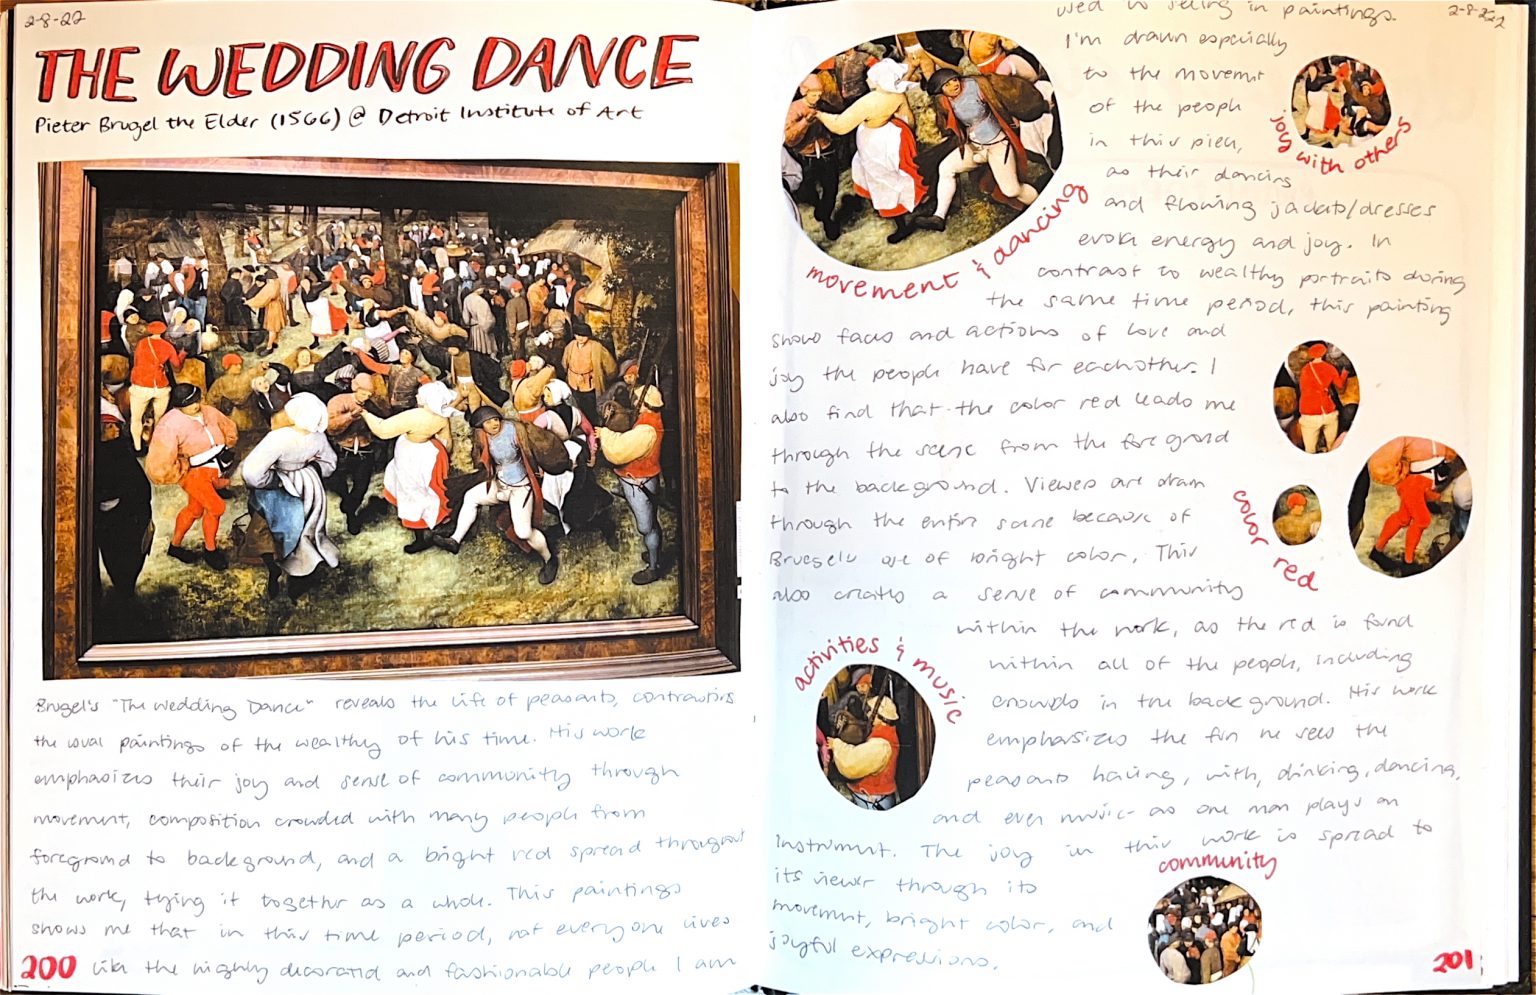 2-8-22
THE WEDDING DANCE
Pieter Brugel the Elder (1566) @ Detroit Institute of Art
Brugel's "The Wedding Dance" reveals the life of peasants, contrasting
the usual paintings of the wealthy of his time. His work
emphasizes their joy and sense of community through
movement, composition crowded with many people from
foreground to background, and a bright red spread throughout
the work, tying it together as a whole. This paintings
shows me that in this time period, not everyone lives
200 like the highly decorated and fashionable people I am
2-8-22
used to seeing in paintings.
I'm drawn especially
to the movemnt
of the people
in this piece,
as their dancing
and flowing jackets/dresses
evoke energy and joy. In
contrast to wealthy portraits during
the same time period, this painting
shows faces and actions of love and
joy the people have for eachother. I
also find that the color red leads me
through the scene from the foreground
to the background. Viewers are drawn
through the entire scene because of
Bruegel's use of bright color. This
also creates a sense of community
within the work, as the red is found
within all of the people, including
crowds in the background. His work
emphasizes the fun he sees the
peasants having, with, drinking, dancing,
and even music- as one man plays an
instrument. The joy in this work is spread to
its viewer through its
movement, bright color, and
joyful expressions.
movement & dancing
joy with others
color red
activities & music
community
201